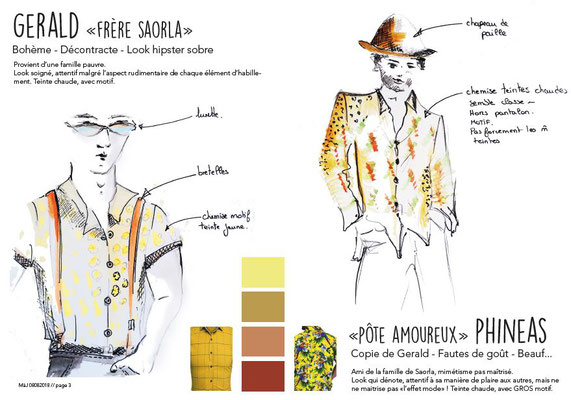 GERALD «FRÈRE SAORLA»
Bohème - Décontracte - Look hipster sobre
Provient d'une famille pauvre.
Look soigné, attentif malgré l'aspect rudimentaire de chaque élément d'habille-
ment. Teinte chaude, avec motif.
lunette.
bretelles
chemise motif
teinte jaune.
chapeau de
paille
chemise teintes chaudes
semble classe -
Hors pantalon.
MOTIF.
Pas forcement les m̂
teintes
«PÔTE AMOUREUX» PHINEAS
Copie de Gerald - Fautes de goût - Beauf...
Ami de la famille de Saorla, mimétisme pas maîtrisé.
Look qui dénote, attentif à sa manière de plaire aux autres, mais ne
ne maitrise pas «l'effet mode» ! Teinte chaude, avec GROS motif.
MàJ 08082018 // page 3